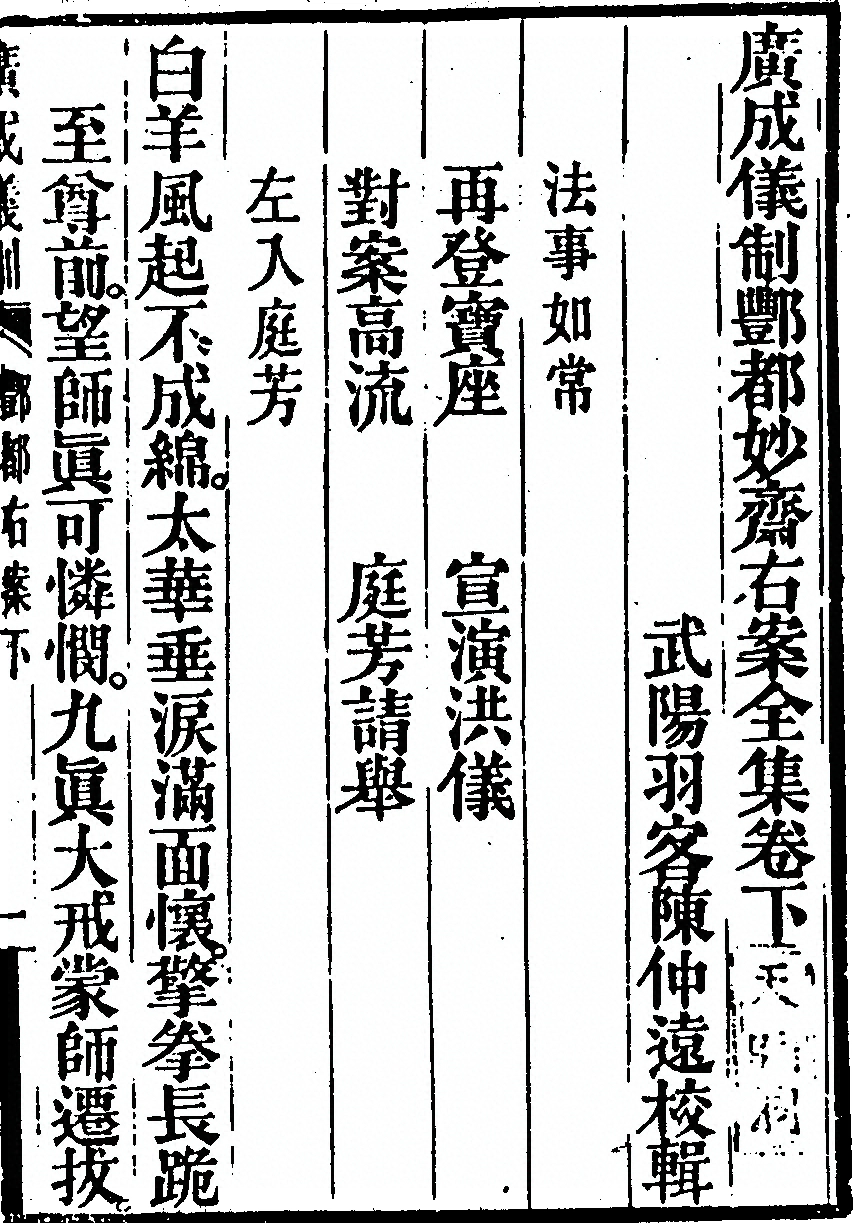 廣成儀制酆都妙齋右案全集卷下
武陽羽客陳仲遠校輯
法事如常
再登寶座　宣演洪儀
對案高流　庭芳請舉
左入庭芳
白羊風起不成綿。太華垂淚滿面懷。擎拳長跪
至尊前。望師眞可憐憫。九眞大戒蒙師遷拔。
廣成儀制　酆都右案下　一